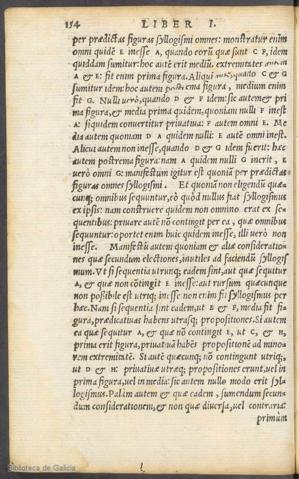 154 LIBER I.
per prædictas figuras syllogismi omnes: monstratur enim
omni quidē E inesse A, quando eorū quæ sunt C F, idem
quiddam sumitur: hoc autē erit mediū. extremitates autem
A & E: fit enim prima figura. Aliqui autē, quando C & G
sumitur idem: hoc autem postrema figura, medium enim
fit G. Nulli uerò, quando D & F idem: sic autem & pri
ma figura, & media prima quidem, quoniam nulli F inest
A: siquidem conuertitur priuatiua: F autem omni E. Me
dia autem quoniam D A quidem nulli: E autē omni inest.
Alicui autem non inesse, quando D & G idem fuerit: hæc
autem postrema figura: nam A quidem nulli G inerit, E
uerò omni G: manifestum igitur est quoniā per prædictas
figuras omnes syllogismi. Et quoniā non eligendū quæ-
cunq; omnibus sequuntur, eò quòd nullus fiat syllogismus
ex ipsis: nam construere quidem non omnino erat ex se-
quentibus: priuare autē nō contingit per ea, quæ omnibus
sequuntur: oportet enim huic quidem inesse, illi uerò non
inesse. Manifestū autem quoniam & aliæ consideratio
nes quæ secundum electiones, inutiles ad faciendū syllogis
mum. Vt si sequentia utriusq; eadem sint, aut quæ sequitur
A, & quæ non cōtingit E inesse: aut rursum quæcunque
non possibile est utriq; inesse: non enim fit syllogismus per
hæc. Nam si sequentia sint eadem, ut B & F, media fit fi-
gura, prædicatiuas habens utrasq; propositiones. Si autem
ea quæ sequitur A, & quæ nō cōtingit E, ut C, & H,
prima erit figura, priuatiuā habēs propositionē ad mino-
rem extremitatē. Si autē quæcunq; nō contingunt utriq;,
ut D & H: priuatiuæ utræq; propositiones erunt, uel in
prima figura, uel in media: sic autem nullo modo erit syl-
logismus. Palàm autem & quæ eadem, sumendum secun-
dum considerationem, & non quæ diuersa, uel contraria:
primùm
Biblioteca de Galicia